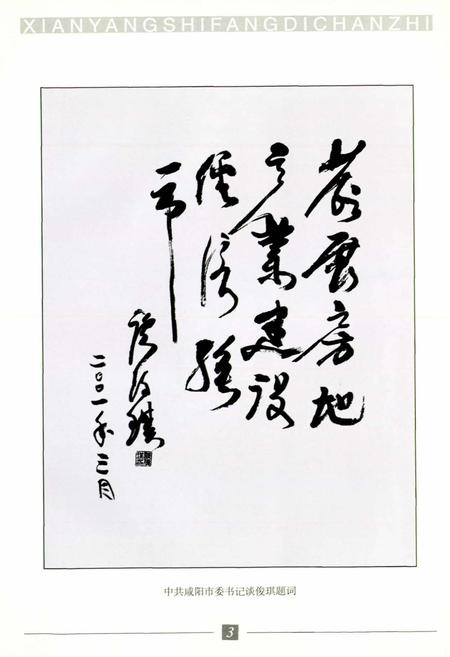 XIANYANGSHIFANGDICHANZHI
发展房地
产業建设
经济强
市
谈俊琪
二00一年三月
中共咸阳市委书记谈俊琪题词
3